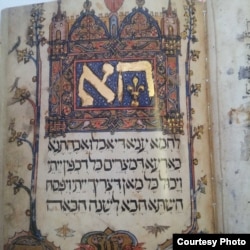 הא
לחמא עניא די אכלו אבהתנא
בארעא דמצרים כל דכפין ייתי
ויכול כל מאן דצריך ייתי ויפסח
השתא הכא לשנה הבאה
Courtesy Photo